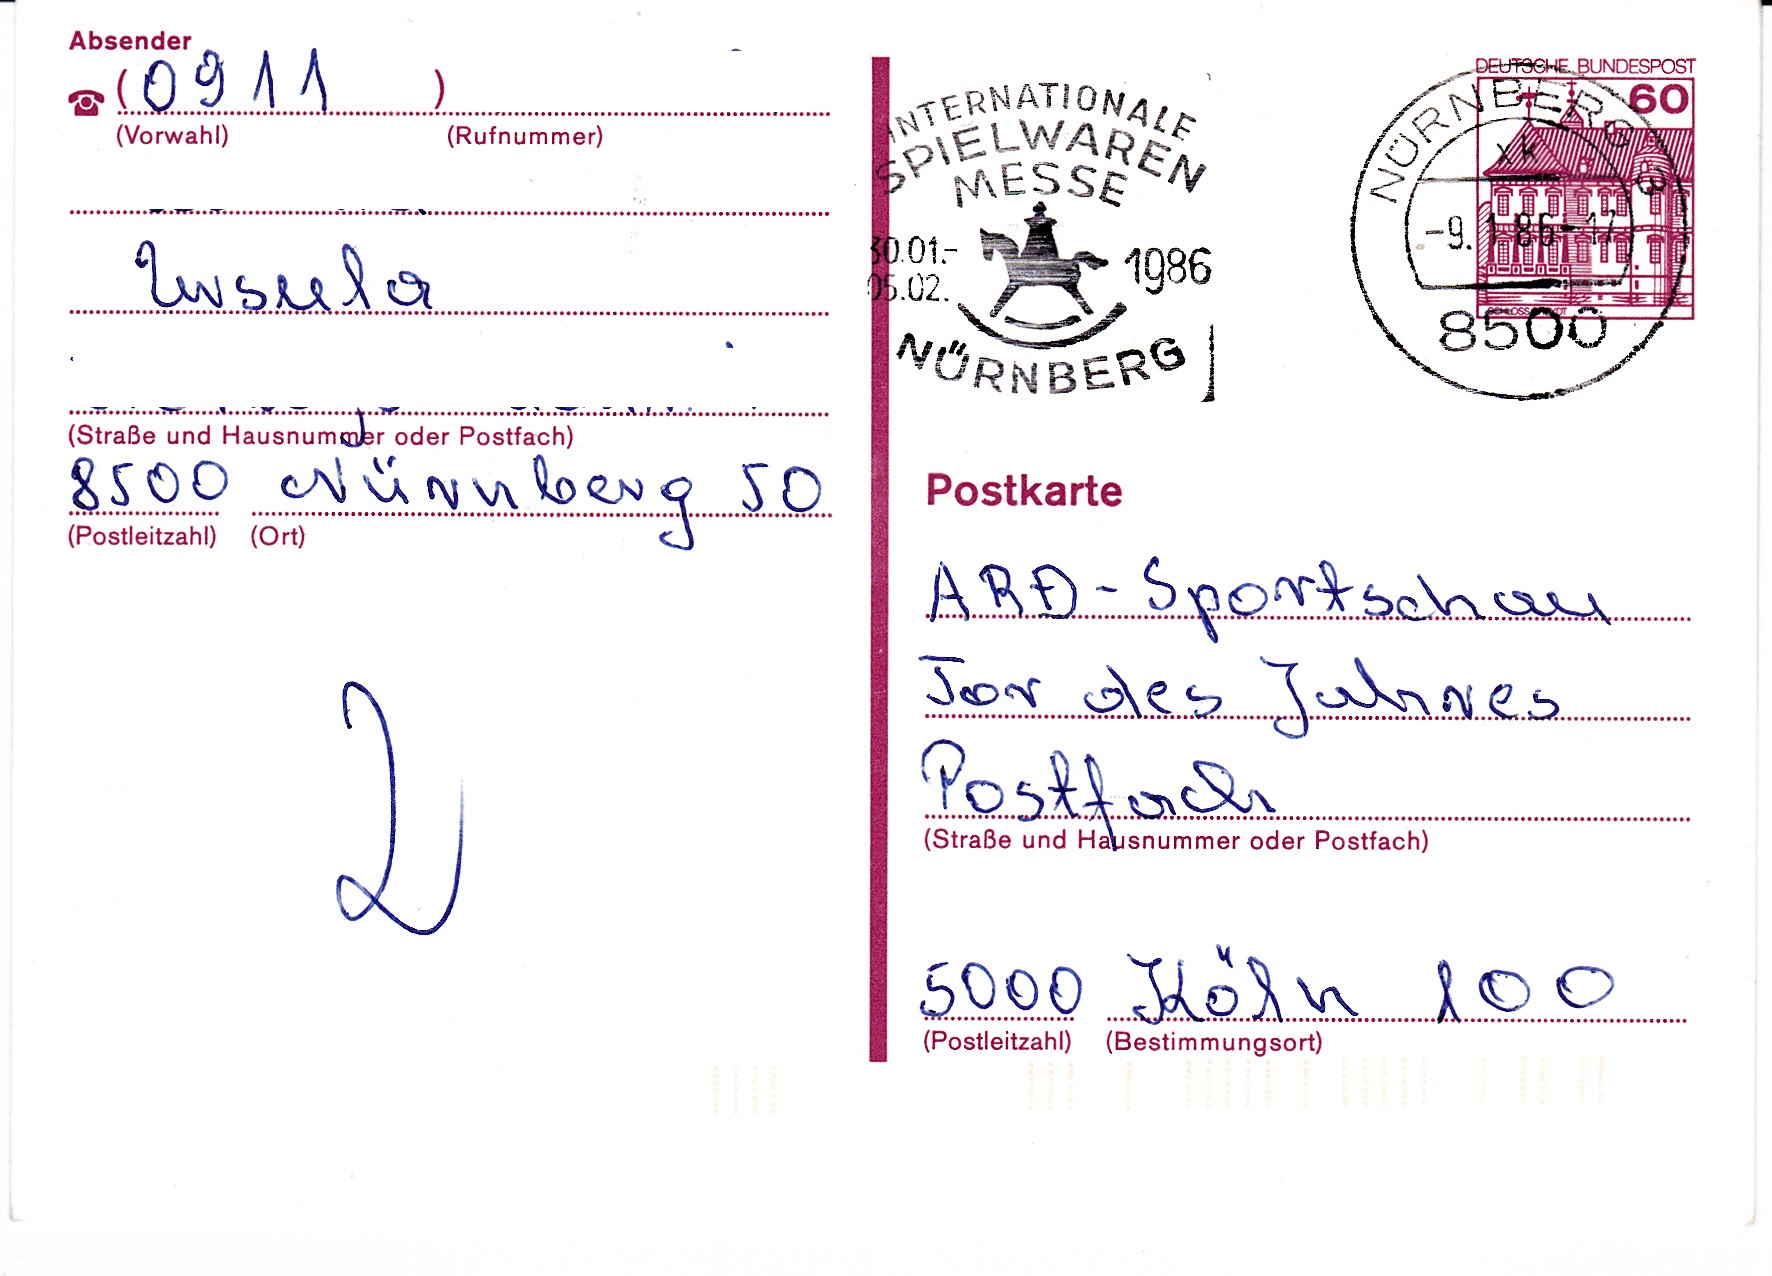 Absender
(0911 )
(Vorwahl) (Rufnummer)
Ursula
(Straße und Hausnummer oder Postfach)
8500 Nürnberg 50
(Postleitzahl) (Ort)
2
INTERNATIONALE
SPIELWAREN
MESSE
30.01.-
05.02.
1986
NÜRNBERG
DEUTSCHE BUNDESPOST
60
NÜRNBERG 3
XK
-9.1.86-17
8500
Postkarte
ARD-Sportschau
Tor des Jahres
Postfach
(Straße und Hausnummer oder Postfach)
5000 Köln 100
(Postleitzahl) (Bestimmungsort)